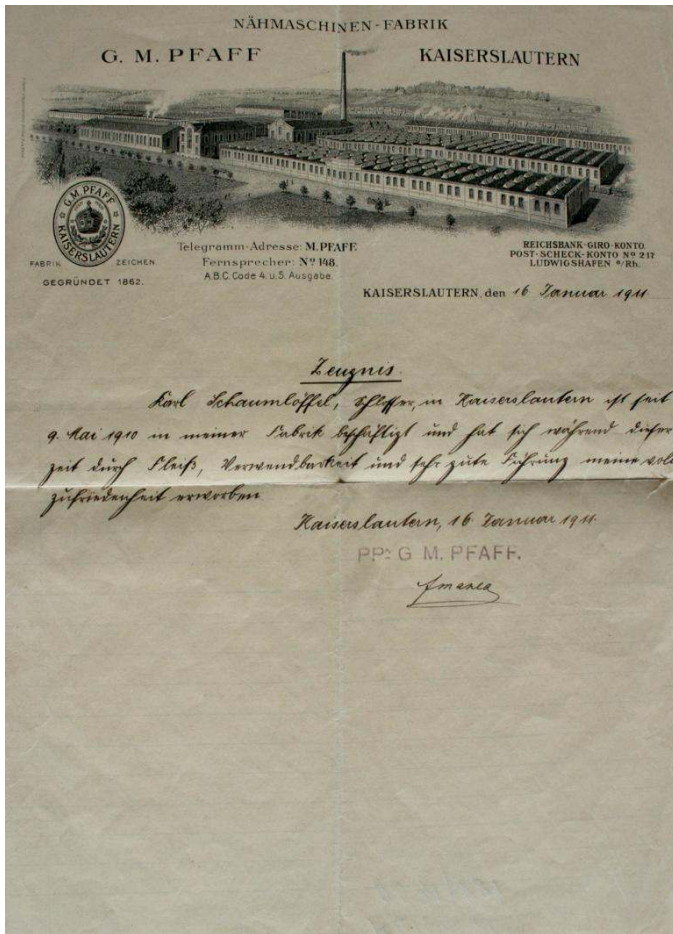 NÄHMASCHINEN-FABRIK
G. M. PFAFF KAISERSLAUTERN
G.M. PFAFF
KAISERSLAUTERN
FABRIK ZEICHEN.
GEGRÜNDET 1862.
Telegramm-Adresse: M. PFAFF
Fernsprecher: Nº 148.
A.B.C. Code 4. u. 5. Ausgabe.
REICHSBANK-GIRO-KONTO.
POST-SCHECK-KONTO Nº 217
LUDWIGSHAFEN a/Rh.
KAISERSLAUTERN, den 16 Januar 1911
Zeugnis.
Karl Schaumlöffel, Schlosser, in Kaiserslautern ist seit
9. Mai 1910 in meiner Fabrik beschäftigt und hat sich während dieser
Zeit durch Fleiß, Verwendbarkeit und sehr gute Führung meine volle
Zufriedenheit erworben
Kaiserslautern, 16. Januar 1911.
PPA G. M. PFAFF.